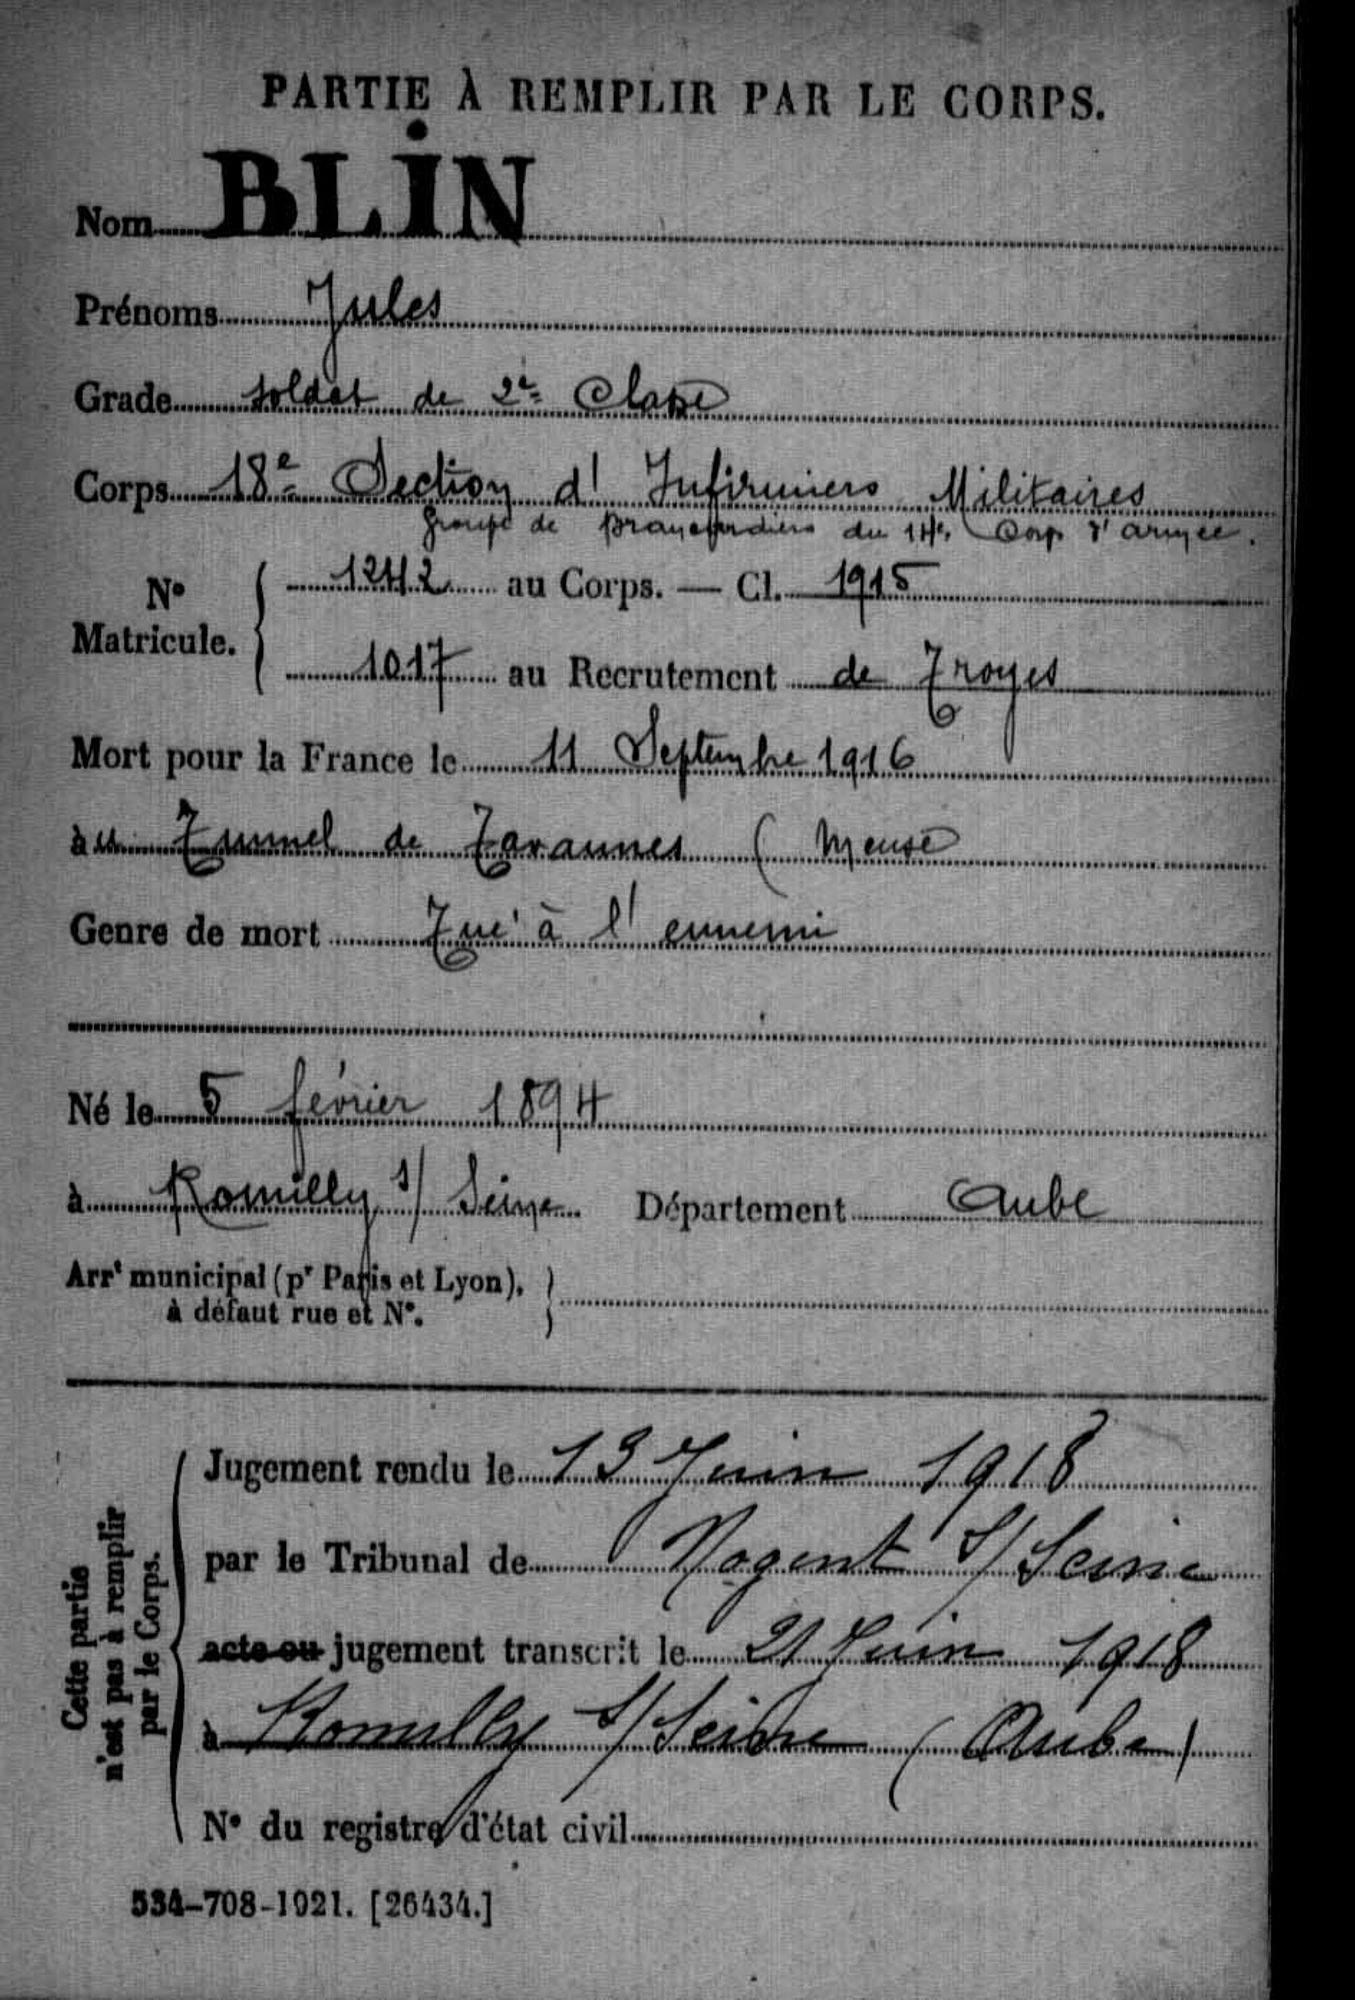 PARTIE À REMPLIR PAR LE CORPS.
Nom BLIN
Prénoms Jules
Grade soldat de 2e Classe
Corps 18e Section d'Infirmiers Militaires
Groupe de Brancardiers du 14e Corps d'armée.
N° Matricule. { 1242 au Corps. — Cl. 1915
1017 au Recrutement de Troyes
Mort pour la France le 11 Septembre 1916
au Tunnel de Tavannes ( Meuse
Genre de mort Tué à l'ennemi
Né le 5 février 1894
à Romilly s/ Seine Département Aube
Arrt municipal (pr Paris et Lyon), }
à défaut rue et N°.
Cette partie
n'est pas à remplir
par le Corps.
Jugement rendu le 13 Juin 1918
par le Tribunal de Nogent s/ Seine
acte ou jugement transcrit le 21 Juin 1918
à Romilly s/ Seine (Aube)
N° du registre d'état civil
534-708-1921. [26434.]